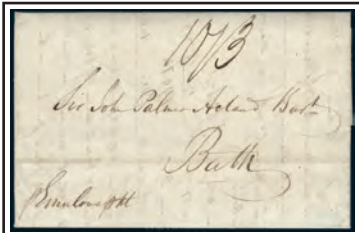 10/3
Sir John Palmer Acland Bart
Bath